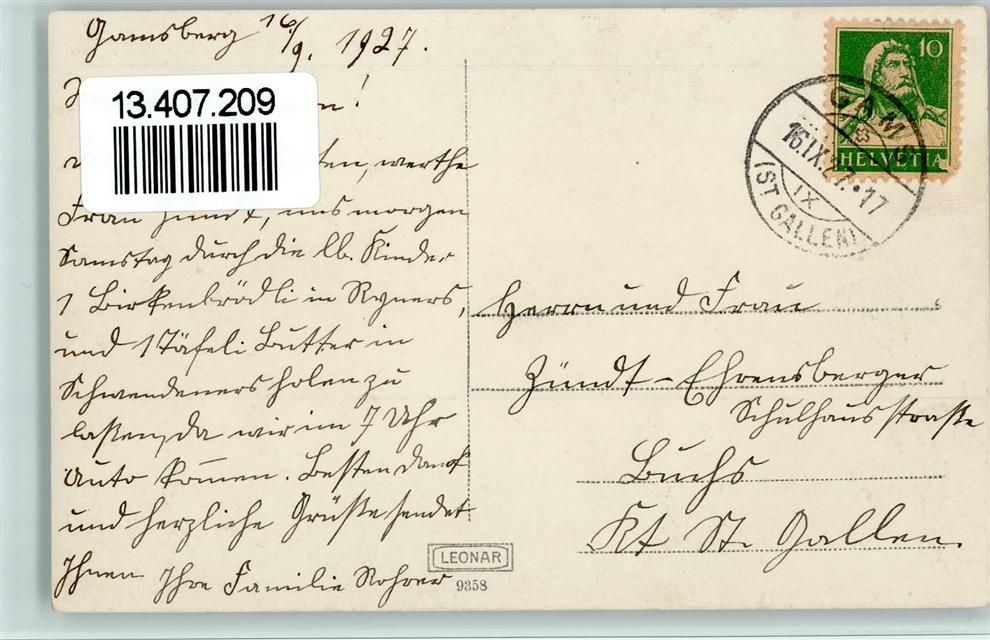 Gamsberg 16/9. 1927.
13.407.209
!
werthe
Frau Zündt, uns morgen
Samstag durch die lb. Kinder
1 Birkenbrödli in Ryners,
und 1 Täfeli Butter in
Schwendeners holen zu
lassen, da wir im 7 Uhr
Auto kom̄en. Besten Dank
und herzliche Grüße sendet
Ihnen Ihre Familie Rohrer
LEONAR
9358
10
HELVETIA
GAMS
16.IX.27.•17
IX
(ST GALLEN)
Herrn und Frau
Zündt-Ehrensberger
Schulhausstraße
Buchs
Kt St. Gallen.